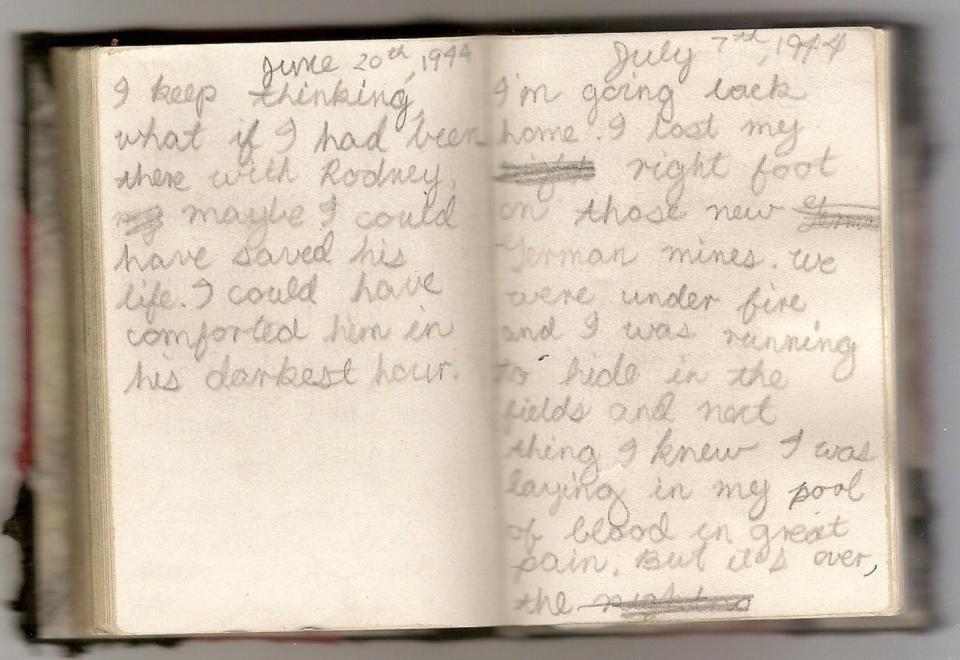 June 20th, 1944
I keep thinking
what if I had been
there with Rodney,
maybe I could
have saved his
life. I could have
comforted him in
his darkest hour.
July 7th, 1944
I'm going back
home. I lost my
right right foot
on those new German
German mines. We
were under fire
and I was running
to hide in the
fields and next
thing I knew I was
laying in my pool
of blood in great
pain. But it's over,
the